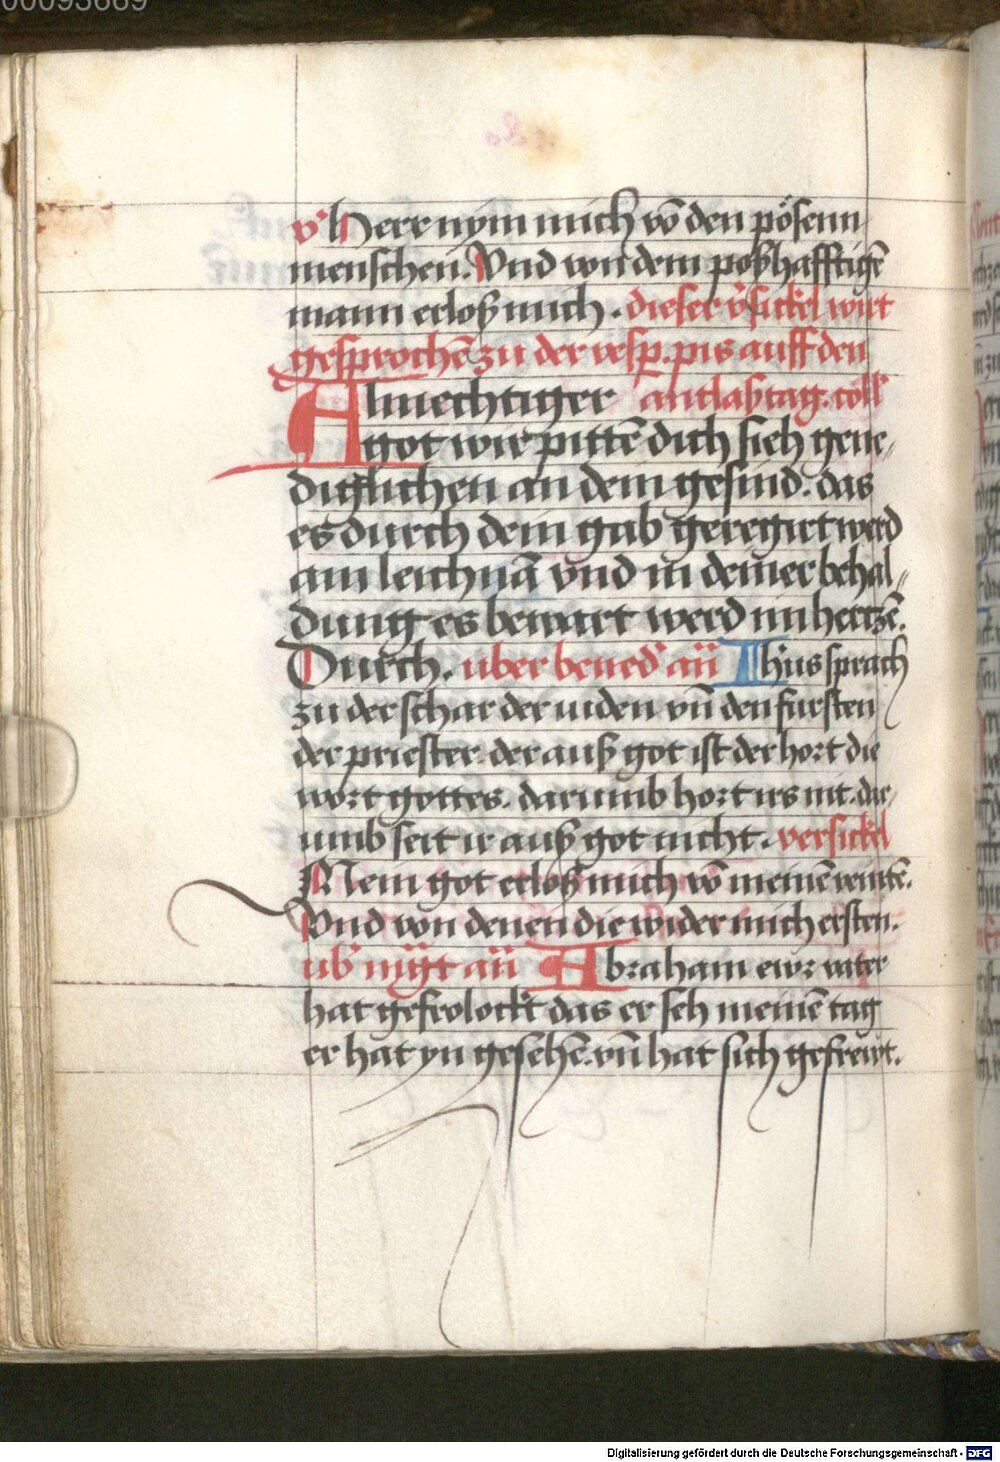 00093669
v̓ Herr nym mich vō den pösenn
menschen. Vnd von dem poßhafftigē
mann erloß mich. dieser v̓sickel wirt
gesprochē zu der vesp. pis auff den
Almechtiger antlaßtag. coll̓
got wir pittē dich sieh gene„
digklichen an dein gesind. das
es durch dein gab geregirt werd
am leichnā vnd in deiner behal„
dung es bewart werd im hertzē.
Durch. uber bened̓ añ Ihūs sprach
zu der schar der iuden vn̄ den fursten
der priester. der auß got ist der hort die
wort gottes. darumb hort irs nit. dar„
umb seit ir auß got nicht. versickel
Mein got erloß mich vō meinē veintē.
Vnd von denen die wider mich ersten.
ub̓ mg̃t añ Abraham ewr vater
hat gefrolockt das er seh meinē tag
er hat yn gesehē. vn̄ hat sich gefrewt.
Digitalisierung gefördert durch die Deutsche Forschungsgemeinschaft - DFG